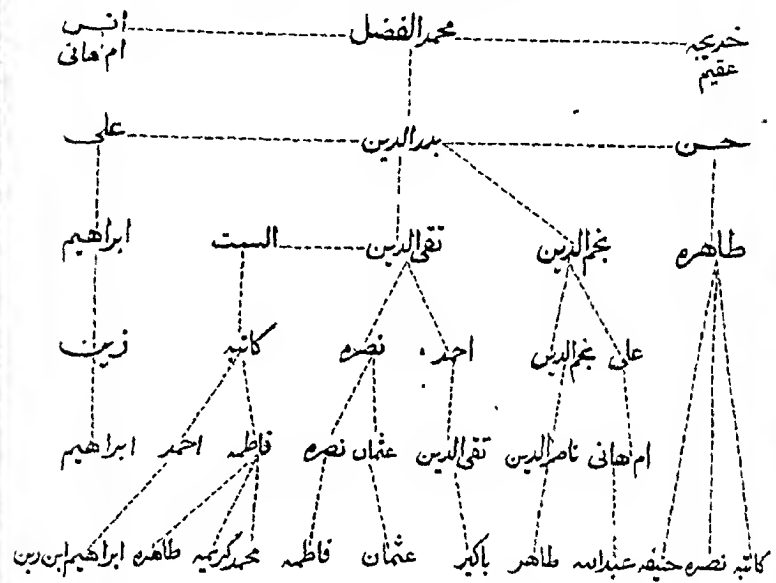 خديجه محمد الفضل انس
عقيم ام هانى
حسن بدر الدين على
طاهره نجم الدين تقى الدين الست ابراهيم
على نجم الدين احمد نصره كاتبه زين
ام هانى ناصر الدين تقى الدين عثمان نصره فاطمه احمد ابراهيم
كاتبه نصره حنيفه عبدالله طاهر باكير عثمان فاطمه محمد كريميه طاهره ابراهيم ابن زين